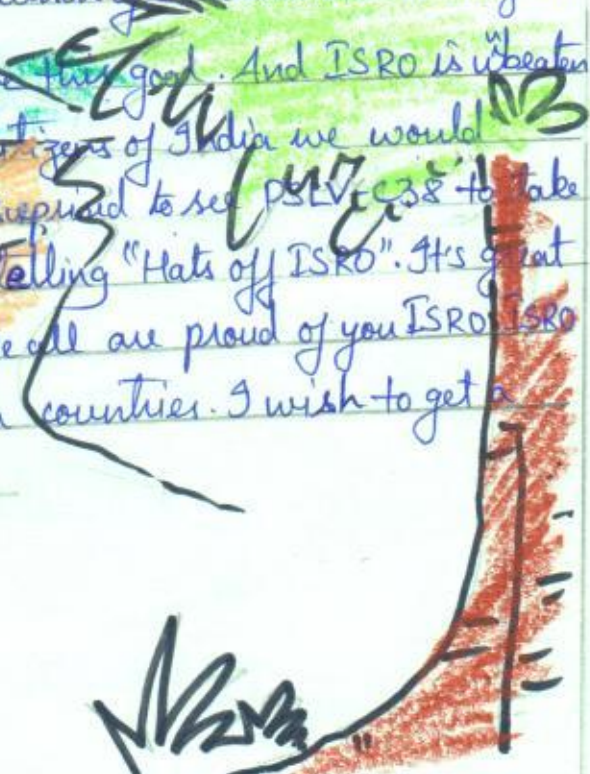 this good. And ISRO is unbeaten
of India we would
to see PSLV-C38 to take
elling "Hats off ISRO". It's great
all are proud of you ISRO ISRO
countries. I wish to get a